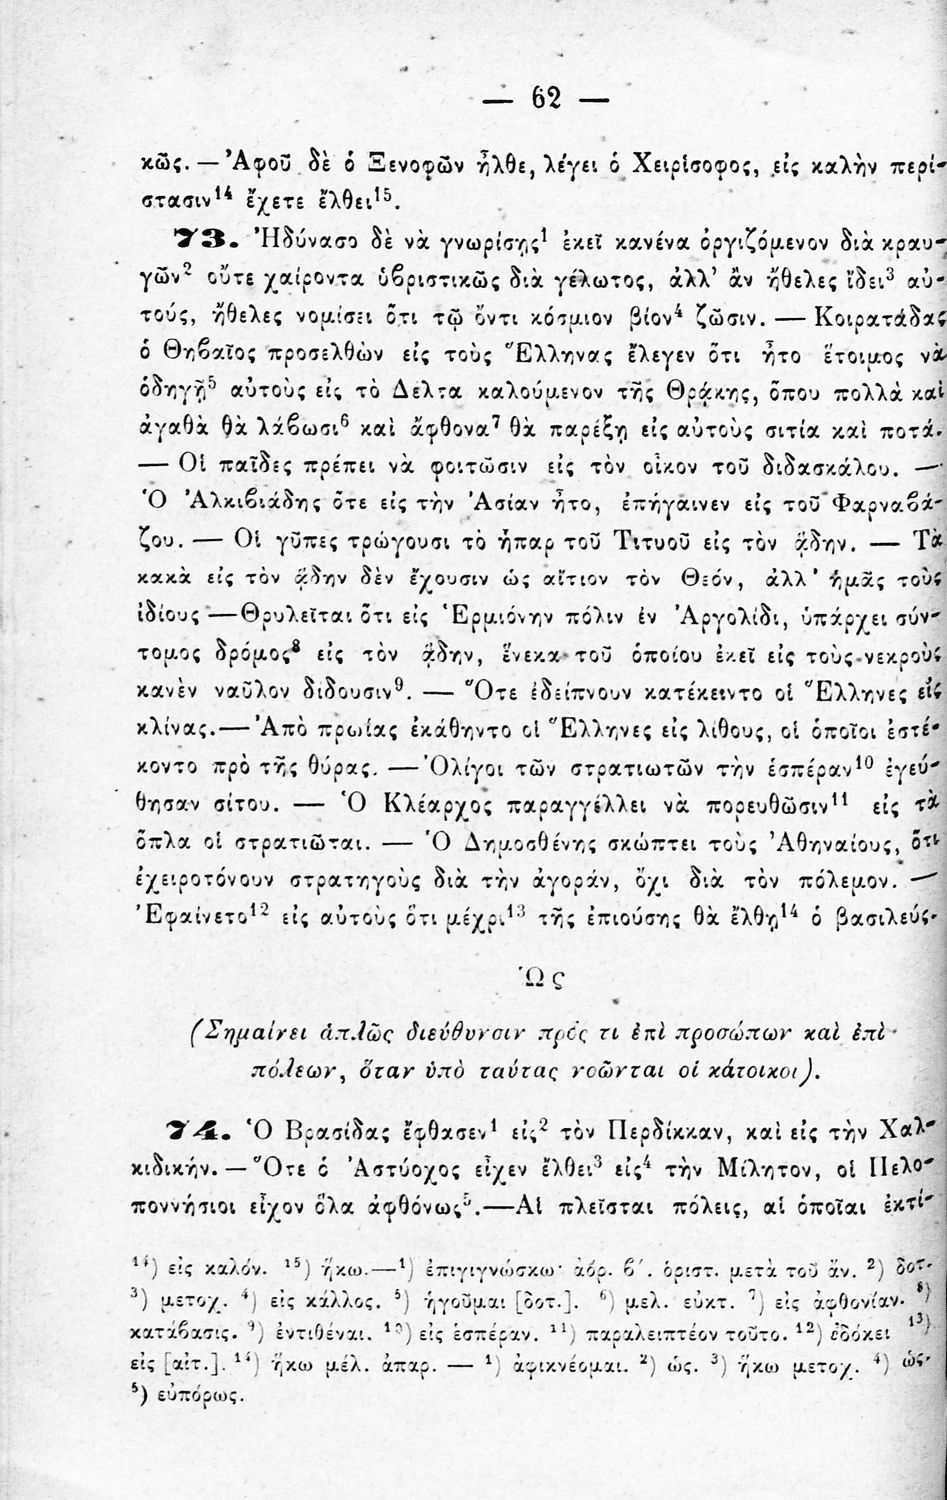 — 62 —
κῶς. — Ἀφοῦ δὲ ὁ Ξενοφῶν ἦλθε, λέγει ὁ Χειρίσοφος, εἰς καλὴν περί-
στασιν¹⁴ ἔχετε ἔλθει¹⁵.
73. Ἠδύνασο δὲ νὰ γνωρίσῃς¹ ἐκεῖ κανένα ὀργιζόμενον διὰ κραυ-
γῶν² οὔτε χαίροντα ὑβριστικῶς διὰ γέλωτος, ἀλλ' ἂν ἤθελες ἴδει³ αὐ-
τούς, ἤθελες νομίσει ὅτι τῷ ὄντι κόσμιον βίον⁴ ζῶσιν. — Κοιρατάδας
ὁ Θηβαῖος προσελθὼν εἰς τοὺς Ἕλληνας ἔλεγεν ὅτι ἦτο ἕτοιμος νὰ
ὁδηγῇ⁵ αὐτοὺς εἰς τὸ Δέλτα καλούμενον τῆς Θρᾴκης, ὅπου πολλὰ καὶ
ἀγαθὰ θὰ λάβωσι⁶ καὶ ἄφθονα⁷ θὰ παρέξῃ εἰς αὐτοὺς σιτία καὶ ποτά.
— Οἱ παῖδες πρέπει νὰ φοιτῶσιν εἰς τὸν οἶκον τοῦ διδασκάλου. —
Ὁ Ἀλκιβιάδης ὅτε εἰς τὴν Ἀσίαν ἦτο, ἐπήγαινεν εἰς τοῦ Φαρναβά-
ζου. — Οἱ γῦπες τρώγουσι τὸ ἧπαρ τοῦ Τιτυοῦ εἰς τὸν ᾅδην. — Τὰ
κακὰ εἰς τὸν ᾅδην δὲν ἔχουσιν ὡς αἴτιον τὸν Θεόν, ἀλλ' ἡμᾶς τοὺς
ἰδίους — Θρυλεῖται ὅτι εἰς Ἑρμιόνην πόλιν ἐν Ἀργολίδι, ὑπάρχει σύν-
τομος δρόμος⁸ εἰς τὸν ᾅδην, ἕνεκα τοῦ ὁποίου ἐκεῖ εἰς τοὺς νεκροὺς
κανὲν ναῦλον δίδουσιν⁹. — Ὅτε ἐδείπνουν κατέκειντο οἱ Ἕλληνες εἰς
κλίνας. — Ἀπὸ πρωίας ἐκάθηντο οἱ Ἕλληνες εἰς λίθους, οἱ ὁποῖοι ἐστέ-
κοντο πρὸ τῆς θύρας. — Ὀλίγοι τῶν στρατιωτῶν τὴν ἑσπέραν¹⁰ ἐγεύ-
θησαν σίτου. — Ὁ Κλέαρχος παραγγέλλει νὰ πορευθῶσιν¹¹ εἰς τὰ
ὅπλα οἱ στρατιῶται. — Ὁ Δημοσθένης σκώπτει τοὺς Ἀθηναίους, ὅτι
ἐχειροτόνουν στρατηγοὺς διὰ τὴν ἀγοράν, ὄχι διὰ τὸν πόλεμον. —
Ἐφαίνετο¹² εἰς αὐτοὺς ὅτι μέχρι¹³ τῆς ἐπιούσης θὰ ἔλθῃ¹⁴ ὁ βασιλεύς.
Ὡς
(Σημαίνει ἁπλῶς διεύθυνσιν πρός τι ἐπὶ προσώπων καὶ ἐπὶ
πόλεων, ὅταν ὑπὸ ταύτας νοῶνται οἱ κάτοικοι).
74. Ὁ Βρασίδας ἔφθασεν¹ εἰς² τὸν Περδίκκαν, καὶ εἰς τὴν Χαλ-
κιδικήν. — Ὅτε ὁ Ἀστύοχος εἶχεν ἔλθει³ εἰς⁴ τὴν Μίλητον, οἱ Πελο-
ποννήσιοι εἶχον ὅλα ἀφθόνως⁵. — Αἱ πλεῖσται πόλεις, αἱ ὁποῖαι ἐκτί-
¹⁴) εἰς καλόν. ¹⁵) ἥκω. — ¹) ἐπιγιγνώσκω· ἀόρ. β'. ὁριστ. μετὰ τοῦ ἄν. ²) δοτ.
³) μετοχ. ⁴) εἰς κάλλος. ⁵) ἡγοῦμαι [δοτ.]. ⁶) μελ. εὐκτ. ⁷) εἰς ἀφθονίαν. ⁸)
κατάβασις. ⁹) ἐντιθέναι. ¹⁰) εἰς ἑσπέραν. ¹¹) παραλειπτέον τοῦτο. ¹²) ἐδόκει ¹³)
εἰς [αἰτ.]. ¹⁴) ἥκω μέλ. ἀπαρ. — ¹) ἀφικνέομαι. ²) ὡς. ³) ἥκω μετοχ. ⁴) ὡς.
⁵) εὐπόρως.